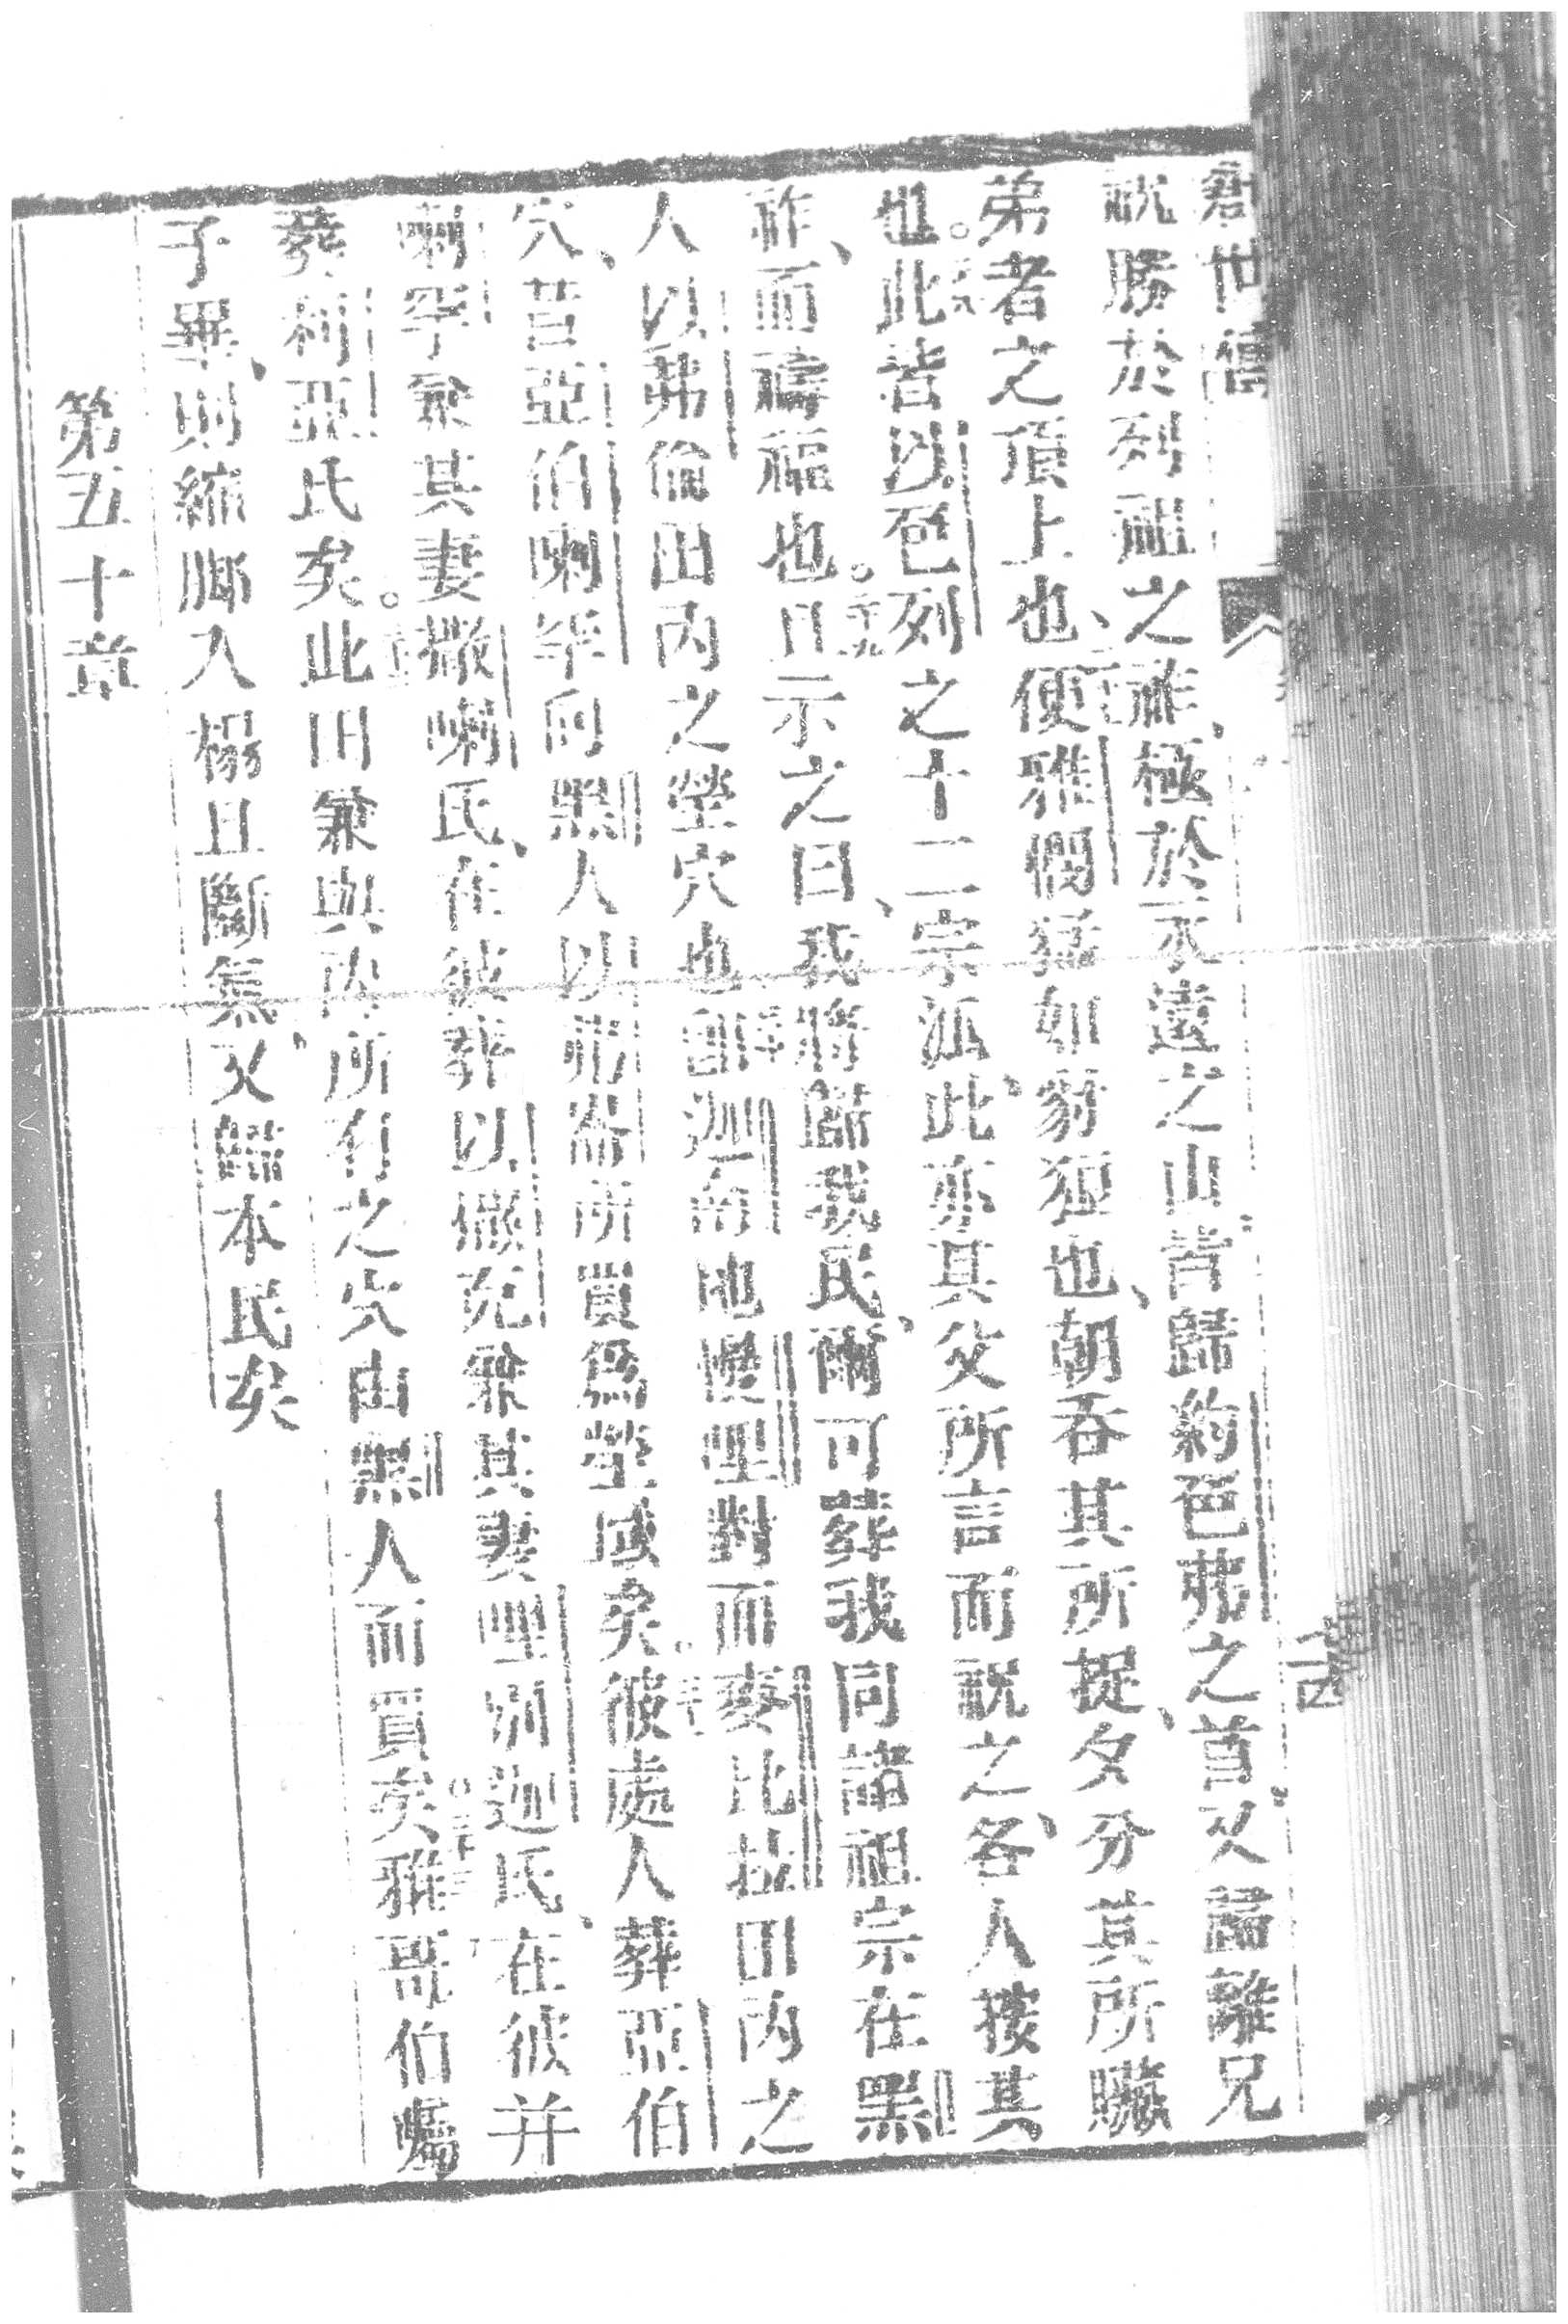 君世傳
祝勝於列祖之祚、極於永遠之山、皆歸約色弗之首、又歸離兄
弟者之頂上也、便雅憫猛如豺狼也、朝吞其所捉、夕分其所贓
也。此皆以色列之十二宗派、此亦其父所言而祝之、各人接其
祚、而禱福也。且示之曰、我將歸我民、爾可葬我同諸祖宗在黑
人以弗倫田內之塋穴也 卽迦南地 對而麥比拉田內之
穴、昔亞伯喇罕向黑人以弗崙所買為塋域矣。彼處人葬亞伯
喇罕兼其妻撒喇氏、在彼葬以 克兼其妻 別迦氏、在彼并
葬利亞氏矣。此田兼與內所有之穴由黑人而買矣。雅哥伯囑
子畢、則縮腳入榻且斷氣、又歸本民矣
第五十章